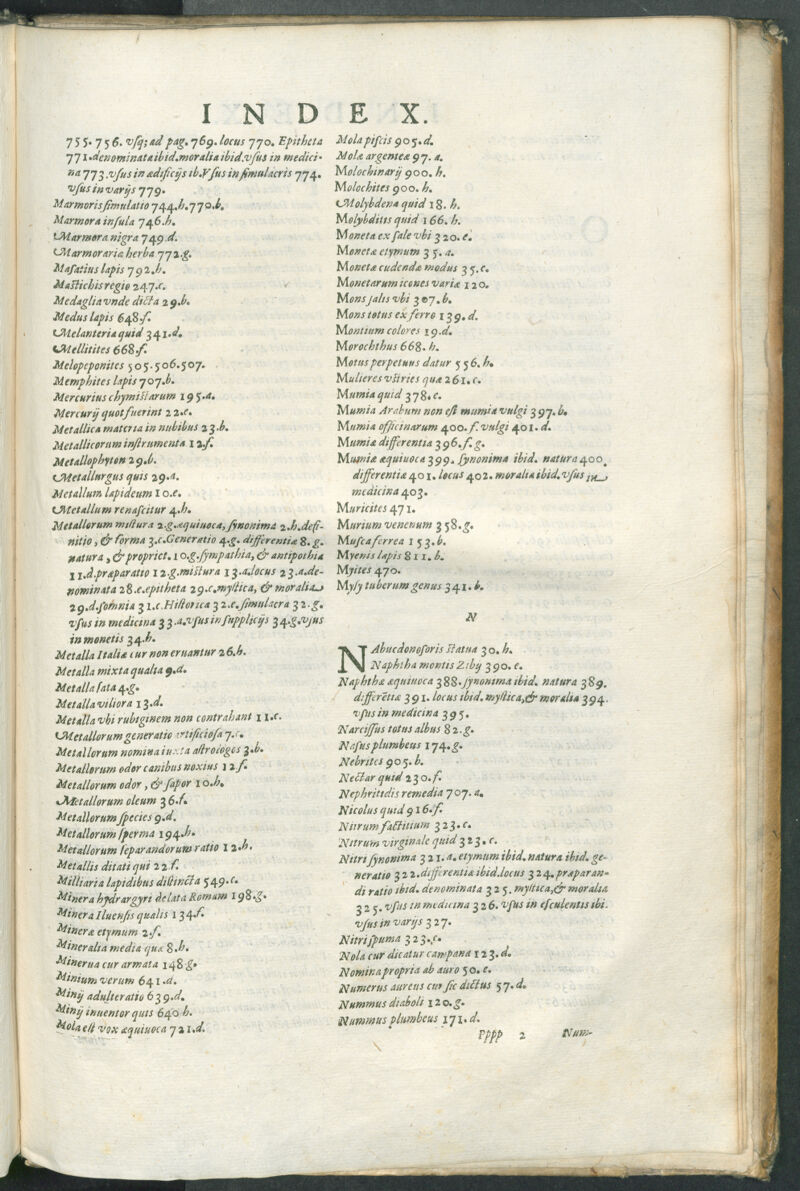 INDEX.
755. 756. vſq; ad pag. 769. locus 770. Epitheta
771. denominata ibid. moralia ibid. vſus in medici-
na 773. vſus in ædificijs ib. Vſus in ſimulacris 774.
vſus in varijs 779.
Marmoris ſimulatio 744.h.770.b.
Marmora inſula 746.h.
Marmora nigra 749.d.
Marmoraria herba 772.g.
Maſatius lapis 792.h.
Maſtichis regio 247.c.
Medaglia vnde dicta 29.b.
Medus lapis 648.f.
Melanteria quid 341.d.
Mellitites 668.f.
Melopeponites 505.506.507.
Memphites lapis 707.b.
Mercurius chymiſtarum 195.a.
Mercurij quot fuerint 22.e.
Metallica materia in nubibus 23.b.
Metallicorum inſtrumenta 12.f.
Metallophyton 29.b.
Metallurgus quis 29.a.
Metallum lapideum 10.e.
Metallum renaſcitur 4.h.
Metallorum miſtura 2.g.æquiuoca, ſynonima 2.h.defi-
nitio, & forma 3.c. Generatio 4.g. differentiæ 8.g.
natura, & propriet. 10.g. ſympathia, & antipathia
11.d. præparatio 12.g. miſtura 13.a. locus 23.a. de-
nominata 28.e. epitheta 29.c. myſtica, & moralia
29.d. ſomnia 31.c. Hiſtorica 32.e. ſimulacra 32.g.
vſus in medicina 33.a. vſus in ſupplicijs 34.g. vſus
in monetis 34.h.
Metalla Italiæ cur non eruantur 26.h.
Metalla mixta qualia 9.d.
Metalla fata 4.g.
Metalla viliora 13.d.
Metalla vbi rubiginem non contrahant 11.c.
Metallorum generatio artificioſa 7.c.
Metallorum nomina iuxta aſtrologos 3.b.
Metallorum odor canibus noxius 12.f.
Metallorum odor, & ſapor 10.h.
Metallorum oleum 36.f.
Metallorum ſpecies 9.d.
Metallorum ſperma 194.h.
Metallorum ſeparandorum ratio 12.h.
Metallis ditati qui 22.f.
Milliaria lapidibus diſtincta 549.c.
Minera hydrargyri delata Romam 198.g.
Minera Iluenſis qualis 134.f.
Minera etymum 2.f.
Mineralia media quæ 8.h.
Minerua cur armata 148.g.
Minium verum 641.d.
Minij adulteratio 639.d.
Minij inuentor quis 640 h.
Mola eſt vox æquiuoca 721.d.
Mola piſcis 905.d.
Molæ argenteæ 97.a.
Molochinarij 900.h.
Molochites 900.h.
Molybdena quid 18.h.
Molybditis quid 166.h.
Moneta ex ſale vbi 320.e.
Monetæ etymum 35.a.
Monetæ cudendæ modus 35.c.
Monetarum icones variæ 120.
Mons ſalis vbi 307.b.
Mons totus ex ferro 139.d.
Montium colores 19.d.
Morochthus 668.h.
Motus perpetuus datur 556.h.
Mulieres vſtrices quæ 261.c.
Mumia quid 378.e.
Mumia Arabum non eſt mumia vulgi 397.b.
Mumia officinarum 400.f. vulgi 401.d.
Mumiæ differentia 396.f.g.
Mumiæ æquiuoca 399. ſynonima ibid. natura 400.
differentiæ 401. locus 402. moralia ibid. vſus in
medicina 403.
Muricites 471.
Murium venenum 358.g.
Muſca ferrea 153.b.
Myenis lapis 811.b.
Myites 470.
Myſy tuberum genus 341.b.
N
NAbucdonoſoris ſtatua 30.h.
Naphtha montis Zibij 390.e.
Naphthæ æquiuoca 388. ſynonima ibid. natura 389.
differẽtiæ 391. locus ibid. myſtica, & moralia 394.
vſus in medicina 395.
Narciſſus totus albus 82.g.
Naſus plumbeus 174.g.
Nebrites 905.b.
Nectar quid 230.f.
Nephritidis remedia 707.a.
Nicolus quid 916.f.
Nitrum factitium 323.c.
Nitrum virginale quid 323.c.
Nitri ſynonima 321.a. etymum ibid. natura ibid. ge-
neratio 322. differentia ibid. locus 324. præparan-
di ratio ibid. denominata 325. myſtica, & moralia
325. vſus in medicina 326. vſus in eſculentis ibi.
vſus in varijs 327.
Nitri ſpuma 323.c.
Nola cur dicatur campana 123.d.
Nomina propria ab auro 50.e.
Numerus aureus cur ſic dictus 57.d.
Nummus diaboli 120.g.
Nummus plumbeus 171.d.
Pppp 2 Num-